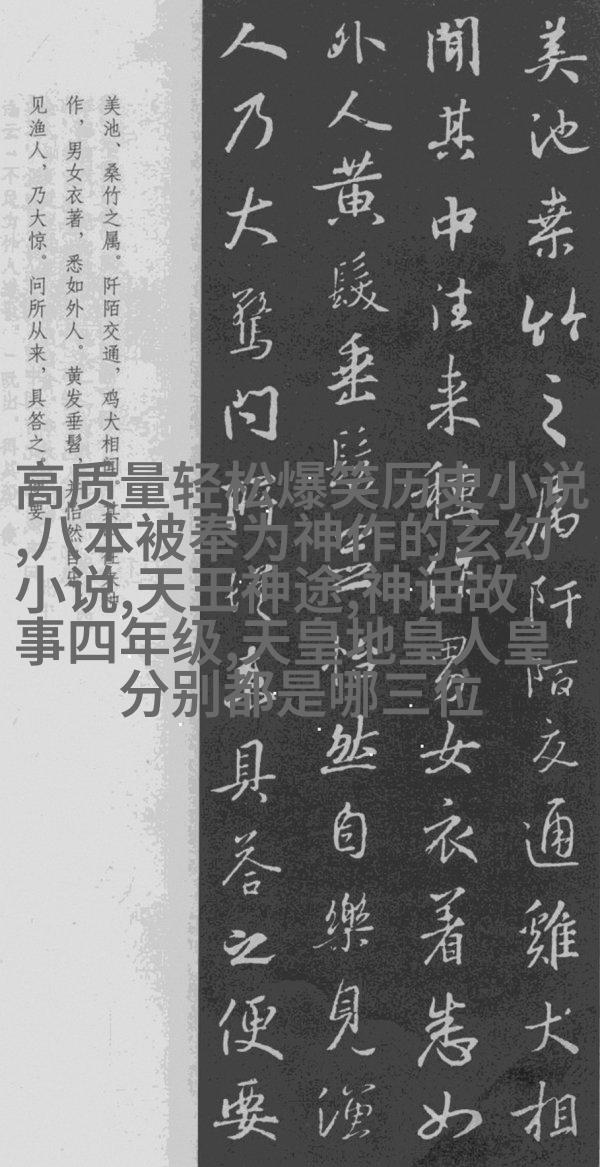 美池桒竹之属阡陌交通雞犬相
聞其中往来種作男女衣着悉如
外人黄髮垂髫並怡然自樂見漁
人乃大驚問所從来具答之便要
美池、桑竹之属。阡陌交通，鸡犬相闻。其中往来种
作，男女衣著，悉如外人。黄发垂髫，并怡然自乐。
见渔人，乃大惊。问所从来，具答之。便要
高质量轻松爆笑历史小说
,八本被奉为神作的玄幻
小说,天王神途,神话故
事四年级,天皇地皇人皇
分别都是哪三位